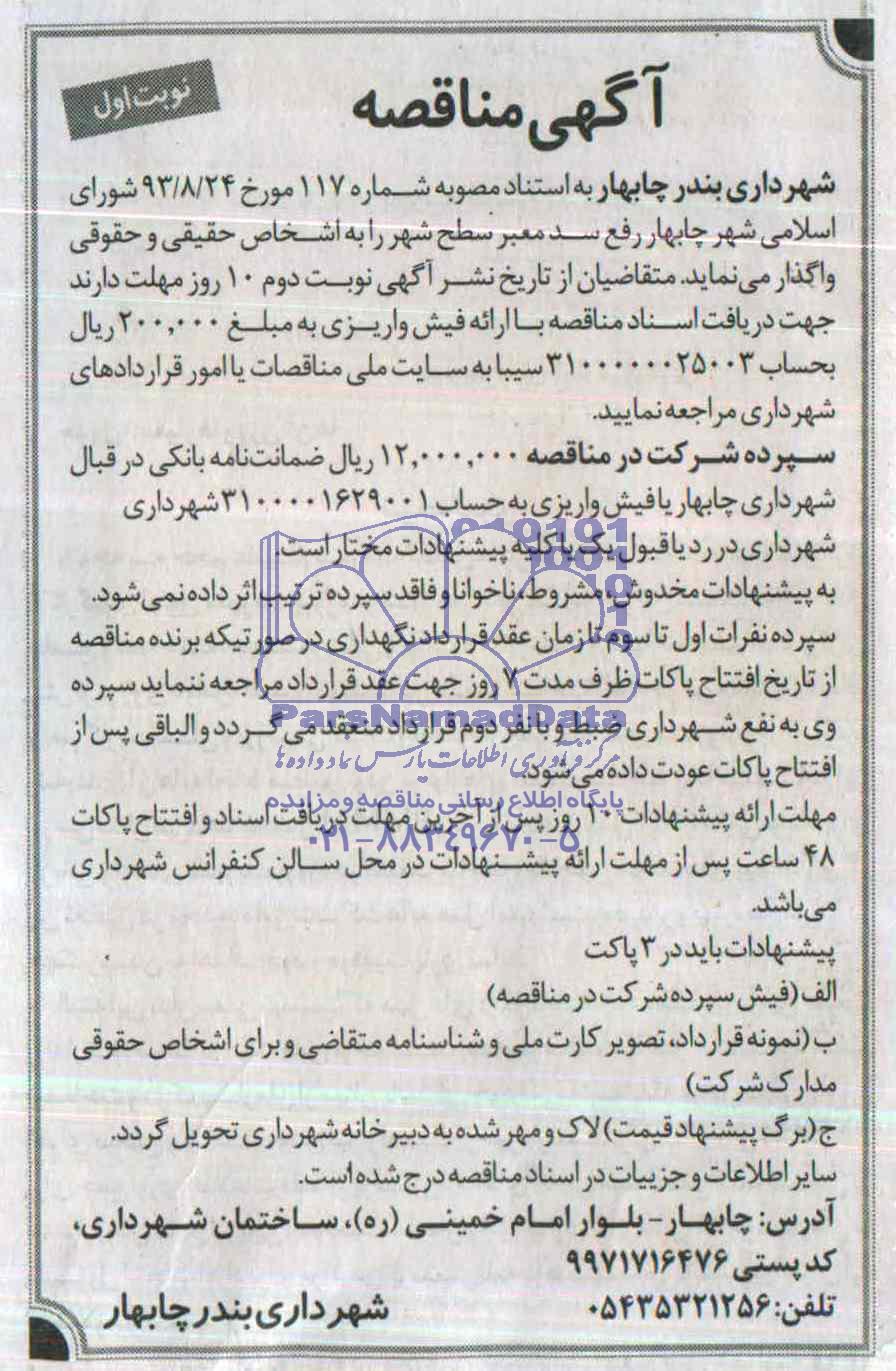 آگهی مناقصه
نوبت اول
شهرداری بندر چابهار به استناد مصوبه شماره ۱۱۷ مورخ ۹۳/۸/۲۴ شورای
اسلامی شهر چابهار رفع سد معبر سطح شهر را به اشخاص حقیقی و حقوقی
واگذار می‌نماید. متقاضیان از تاریخ نشر آگهی نوبت دوم ۱۰ روز مهلت دارند
جهت دریافت اسناد مناقصه با ارائه فیش واریزی به مبلغ ۲۰۰,۰۰۰ ریال
بحساب ۳۱۰۰۰۰۰۰۲۵۰۰۳ سیبا به سایت ملی مناقصات یا امور قراردادهای
شهرداری مراجعه نمایید.
سپرده شرکت در مناقصه ۱۲,۰۰۰,۰۰۰ ریال ضمانت‌نامه بانکی در قبال
شهرداری چابهار یا فیش واریزی به حساب ۳۱۰۰۰۰۱۶۲۹۰۰۱ شهرداری
شهرداری در رد یا قبول یک یا کلیه پیشنهادات مختار است.
به پیشنهادات مخدوش، مشروط، ناخوانا و فاقد سپرده ترتیب اثر داده نمی‌شود.
سپرده نفرات اول تا سوم تا زمان عقد قرارداد نگهداری در صورتیکه برنده مناقصه
از تاریخ افتتاح پاکات ظرف مدت ۷ روز جهت عقد قرارداد مراجعه ننماید سپرده
وی به نفع شهرداری ضبط و با نفر دوم قرارداد منعقد می گردد و الباقی پس از
افتتاح پاکات عودت داده می‌شود.
مهلت ارائه پیشنهادات ۱۰ روز پس از آخرین مهلت دریافت اسناد و افتتاح پاکات
۴۸ ساعت پس از مهلت ارائه پیشنهادات در محل سالن کنفرانس شهرداری
می‌باشد.
پیشنهادات باید در ۳ پاکت
الف (فیش سپرده شرکت در مناقصه)
ب (نمونه قرارداد، تصویر کارت ملی و شناسنامه متقاضی و برای اشخاص حقوقی
مدارک شرکت)
ج (برگ پیشنهاد قیمت) لاک و مهر شده به دبیرخانه شهرداری تحویل گردد.
سایر اطلاعات و جزییات در اسناد مناقصه درج شده است.
آدرس: چابهار - بلوار امام خمینی (ره)، ساختمان شهرداری،
کد پستی ۹۹۷۱۷۱۶۴۷۶
تلفن: ۰۵۴۳۵۳۲۱۲۵۶
شهرداری بندر چابهار
ParsNamadData
مرکز فرآوری اطلاعات پارس نماد داده ها
پایگاه اطلاع رسانی مناقصه و مزایده
۰۲۱-۸۸۳۴۹۶۷۰-۵